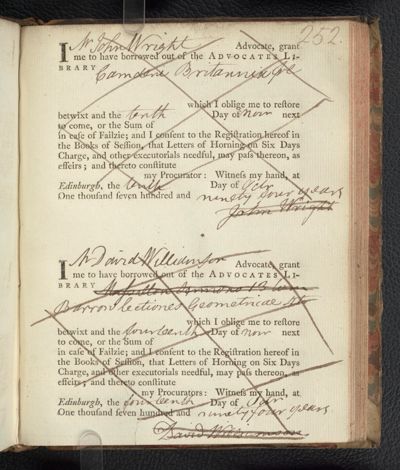 252.
I Mr John Wright Advocate, grant
me to have borrowed out of the ADVOCATES LI-
BRARY
Camdeni Britannia
which I oblige me to reſtore
betwixt and the tenth Day of Novr next
to come, or the Sum of
in caſe of Failzie; and I conſent to the Regiſtration hereof in
the Books of Seſſion, that Letters of Horning on Six Days
Charge, and other executorials needful, may paſs thereon, as
effeirs; and thereto conſtitute
my Procurator: Witneſs my hand, at
Edinburgh, the tenth Day of Octr
One thouſand ſeven hundred and ninety four years
John Wright
I Mr David Williamson Advocate, grant
me to have borrowed out of the ADVOCATES LI-
BRARY
Barrow Lectiones Geometricae 4to
which I oblige me to reſtore
betwixt and the fourteenth Day of Novr next
to come, or the Sum of
in caſe of Failzie; and I conſent to the Regiſtration hereof in
the Books of Seſſion, that Letters of Horning on Six Days
Charge, and other executorials needful, may paſs thereon, as
effeirs; and thereto conſtitute
my Procurators: Witneſs my hand, at
Edinburgh, the fourteenth Day of Octr
One thouſand ſeven hundred and ninety four years
David Williamson